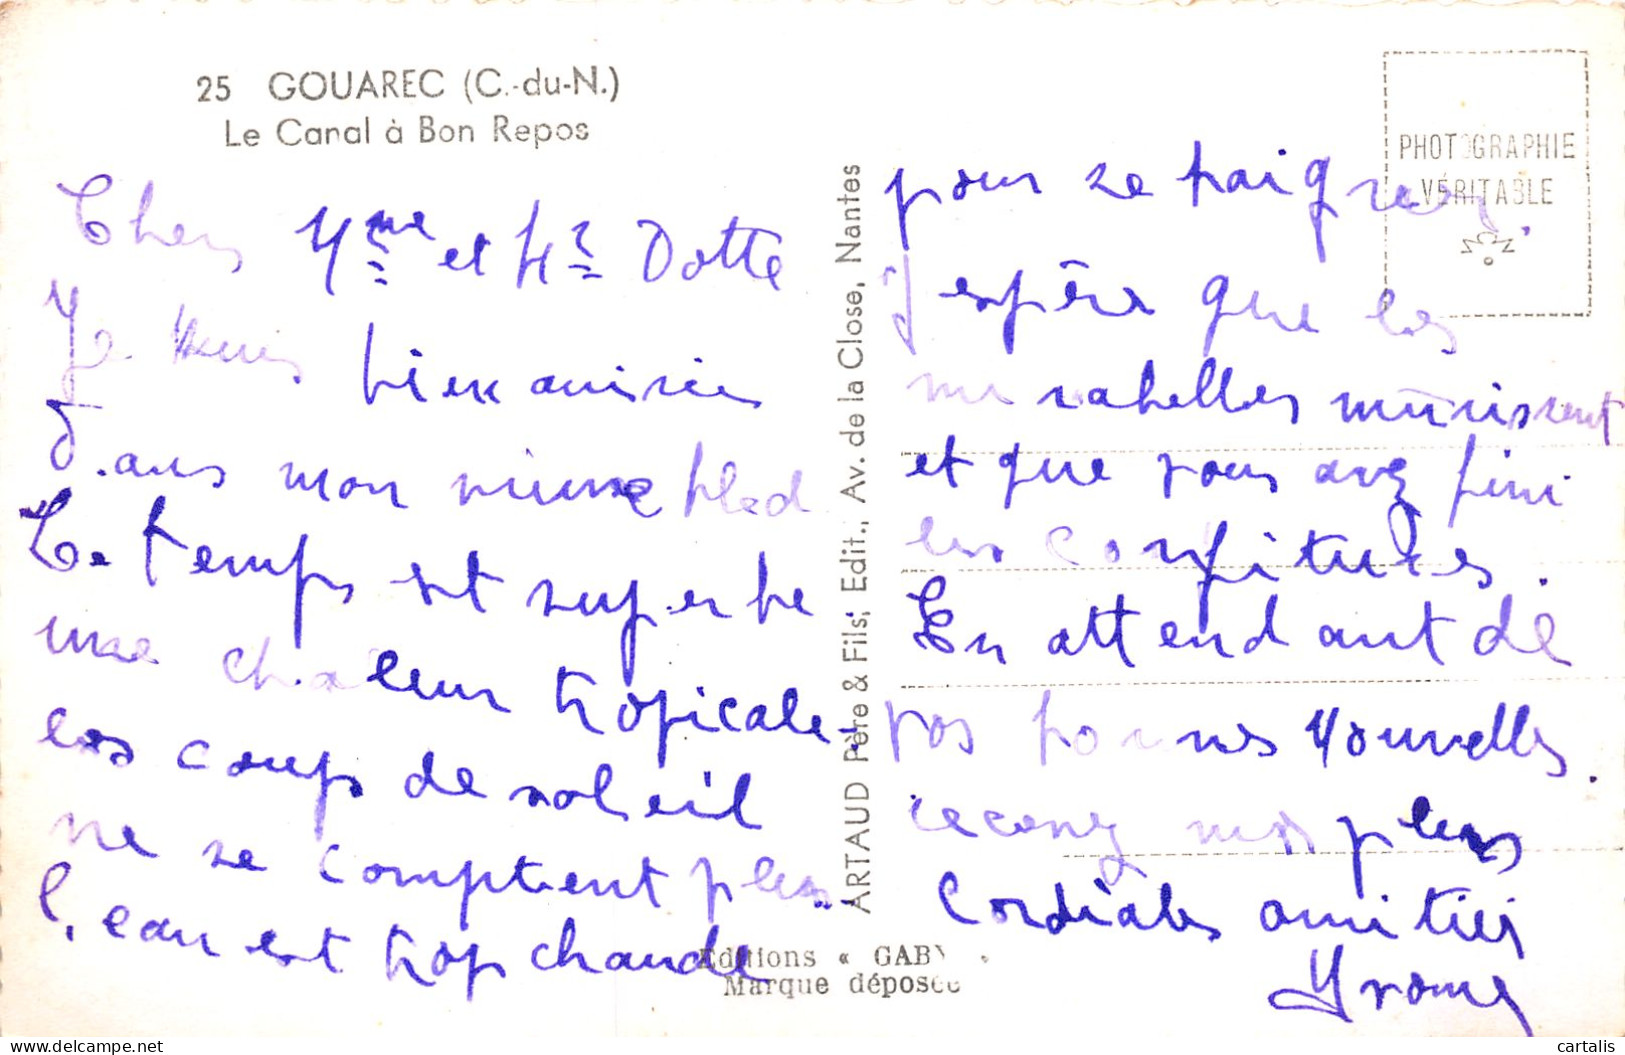 25 GOUAREC (C.-du-N.)
Le Canal à Bon Repos
Chers Mme et Mr Dotte
Je suis bien arrivée
dans mon vieux bled
Le temps est superbe
une chaleur tropicale.
les coups de soleil
ne se comptent plus
l'eau est trop chaude
pour se baigner.
j'espère que les
mirabelles mûrissent
et que vous avez fini
les confitures.
En attendant de
vos bonnes Nouvelles.
recevez mes plus
Cordiales amitiés
Yvonne
ARTAUD Père & Fils, Edit., Av. de la Close, Nantes
Editions « GABY »
Marque déposée
PHOTOGRAPHIE
VÉRITABLE
cartalis